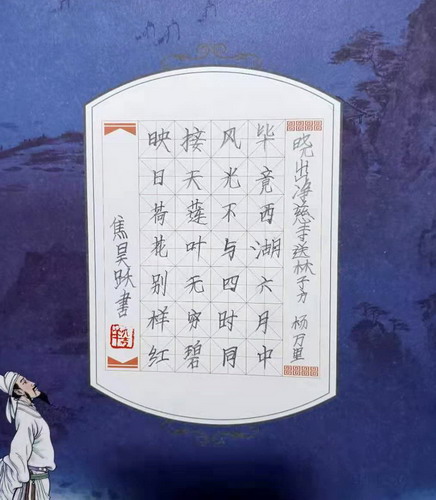 晓出净慈寺送林子方 杨万里
毕竟西湖六月中
风光不与四时同
接天莲叶无穷碧
映日荷花别样红
焦昊跃书